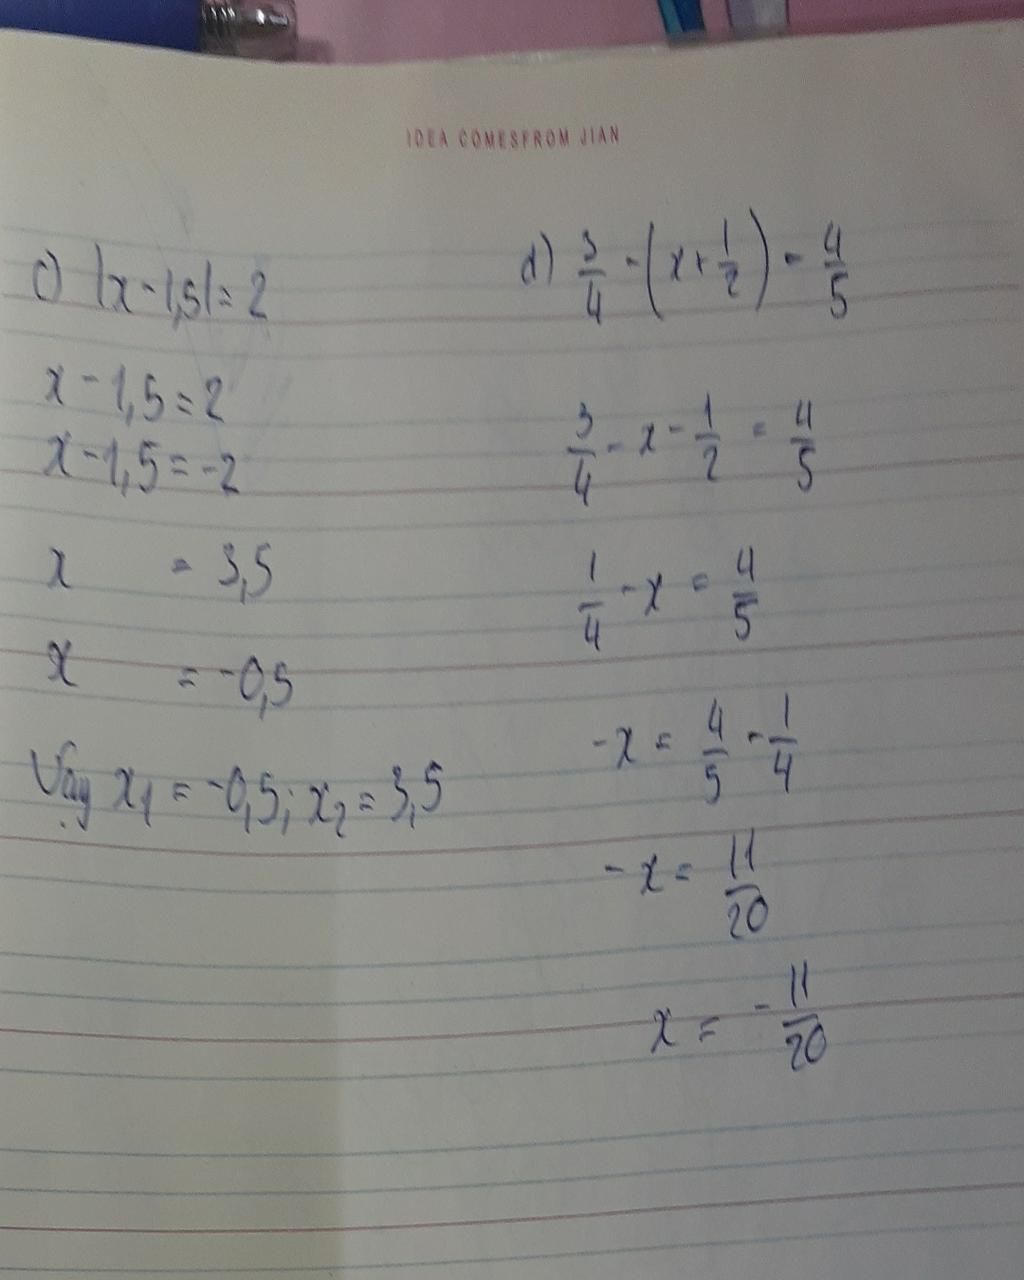 IDEA COMESFROM JIAN
c) |x - 1,5| = 2
x - 1,5 = 2
x - 1,5 = -2
x = 3,5
x = -0,5
Vậy x₁ = -0,5; x₂ = 3,5
d) 3/4 - (x + 1/2) = 4/5
3/4 - x - 1/2 = 4/5
1/4 - x = 4/5
-x = 4/5 - 1/4
-x = 11/20
x = -11/20